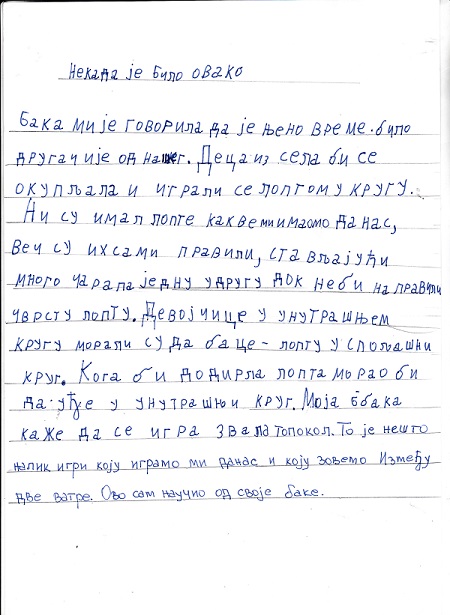 Некада је било овако
Бака ми је говорила да је њено време било
другачије од нашег. Деца из села би се
окупљала и играли се лоптом у кругу.
Ни су имал лопте какве ми имаомо данас,
већ су их сами правили, стављајући
много чарапа једну у другу док неби направили
чврсту лопту. Девојчице у унутрашњем
кругу морали су да баце лопту у спољашњи
круг. Кога би додирла лопта морао би
да уђе у унутрашњи круг. Моја бака
каже да се игра звала топокол. То је нешто
налик игри коју играмо ми данас и коју зовемо Између
две ватре. Ово сам научио од своје баке.